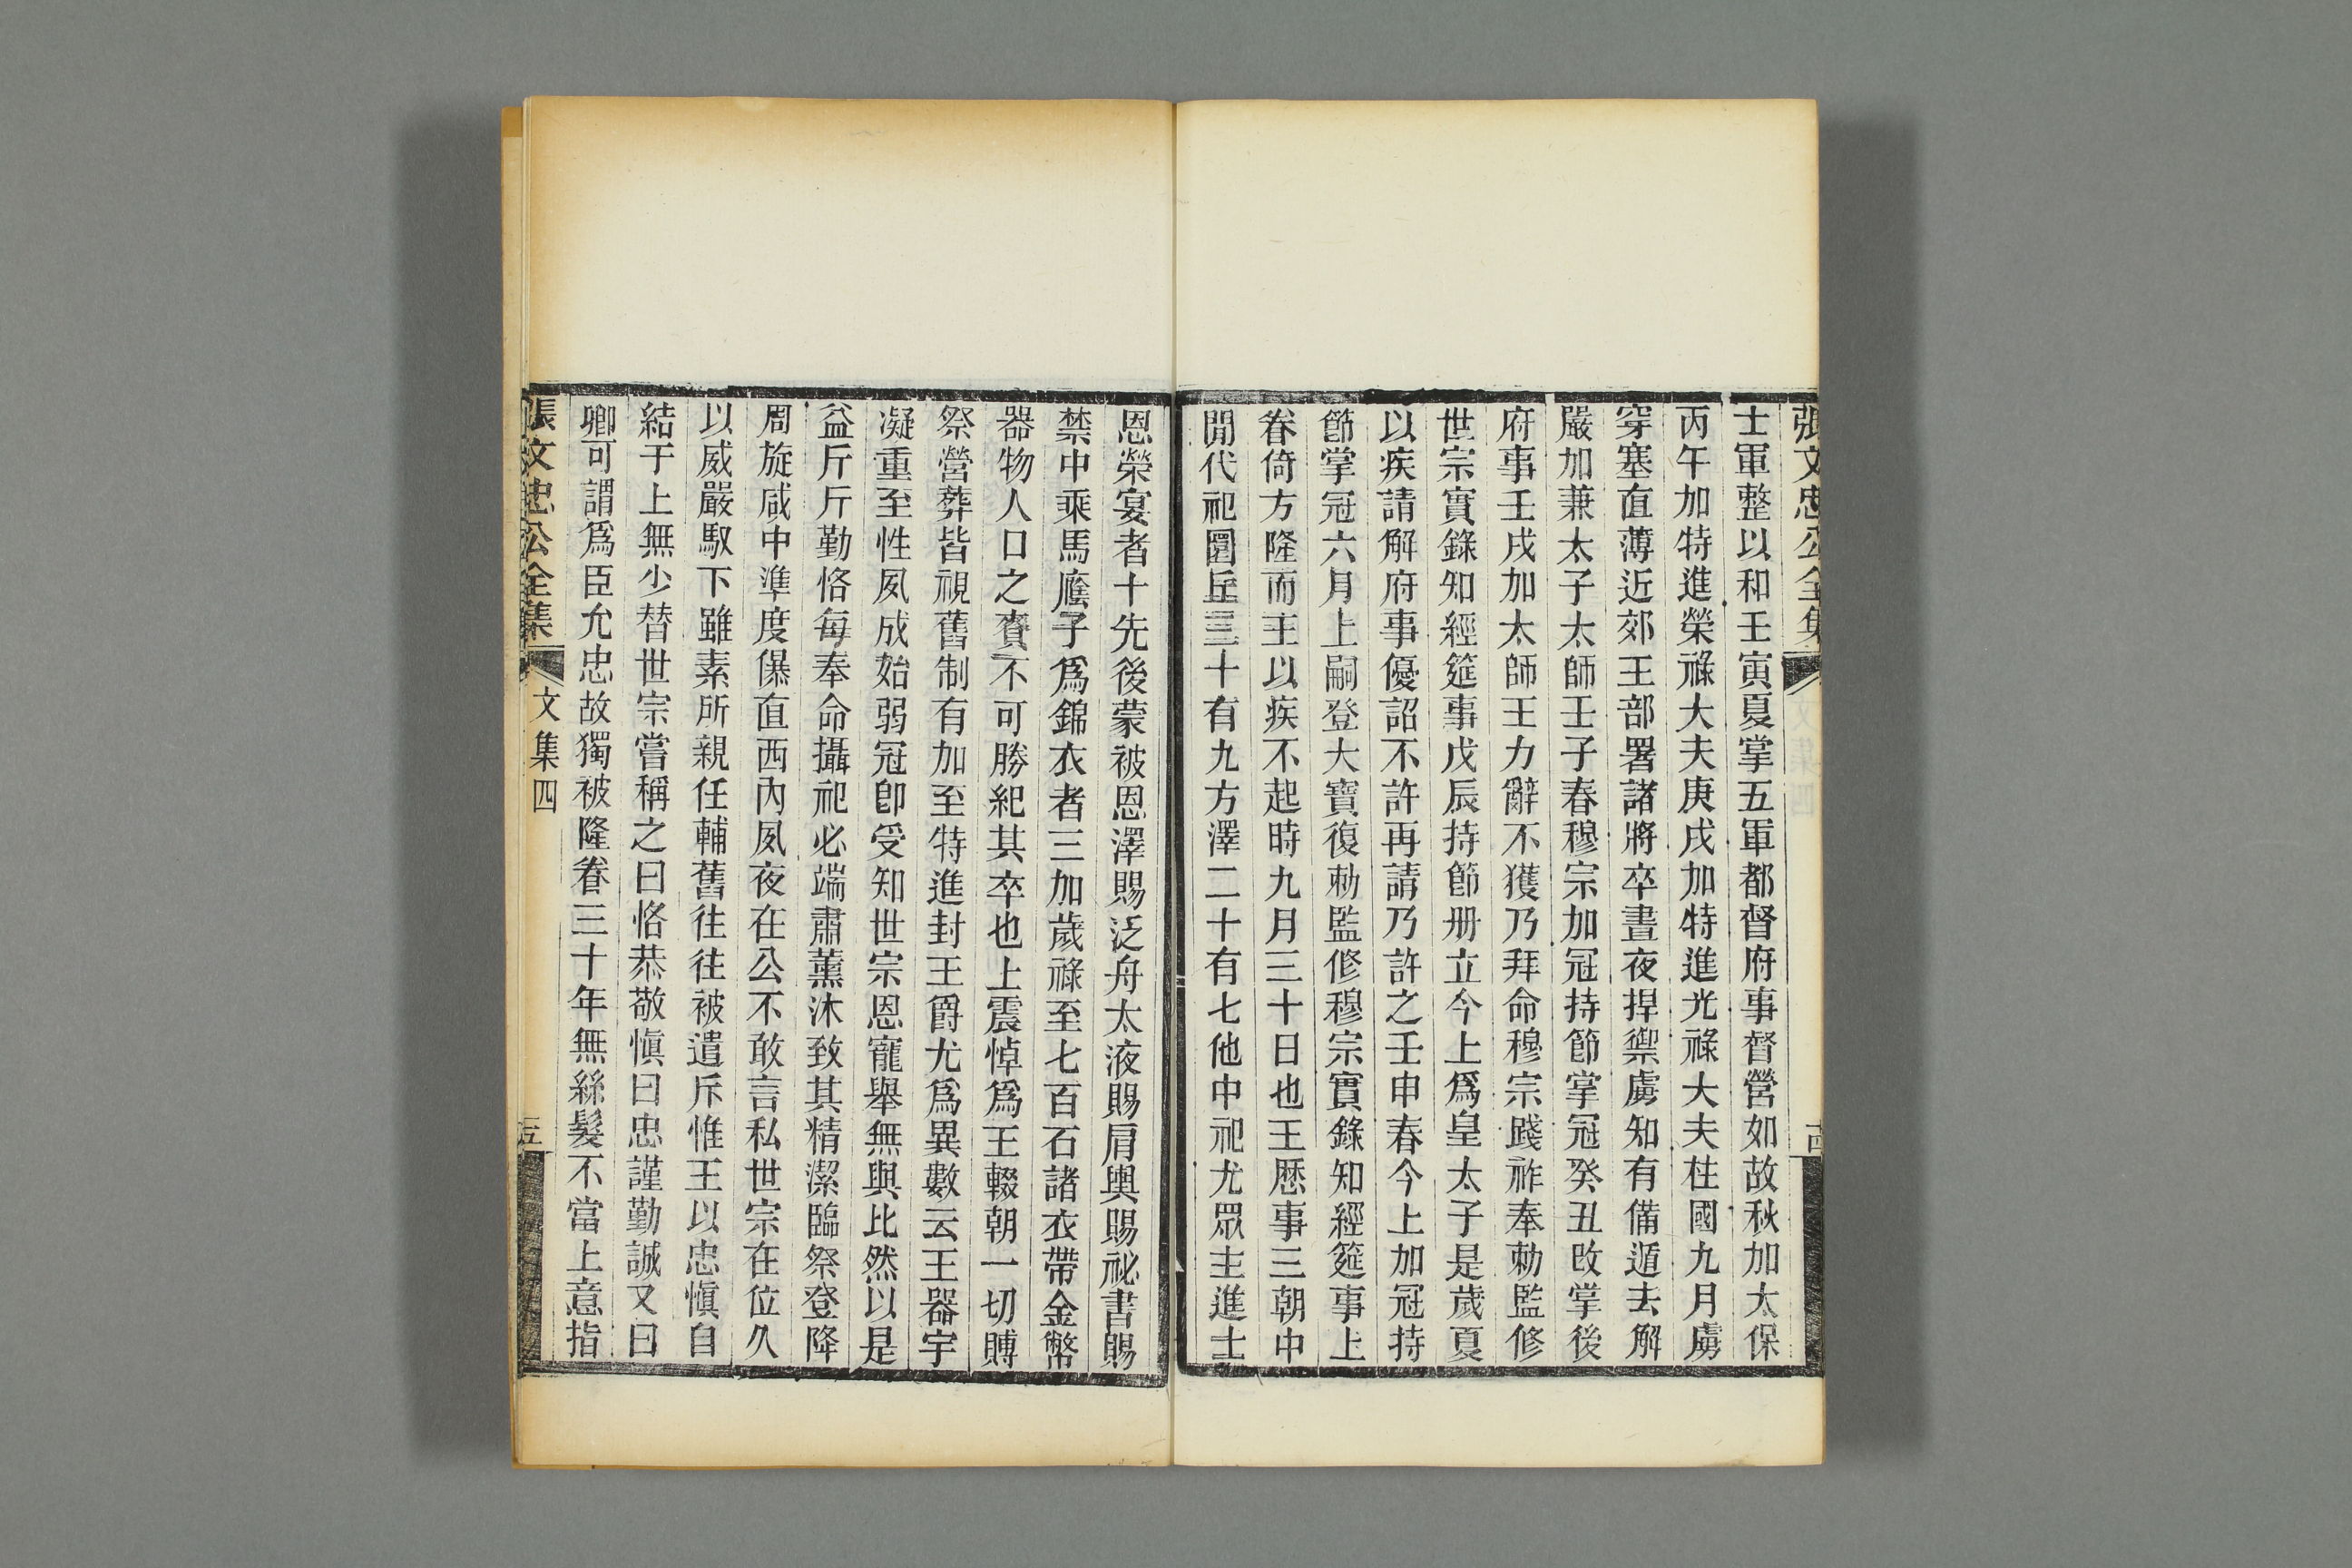 張文忠公全集
士軍整以和壬寅夏掌五軍都督府事督營如故秋加太保
丙午加特進榮祿大夫庚戌加特進光祿大夫柱國九月虜
穿塞直薄近郊王部署諸將卒晝夜捍禦虜知有備遁去解
嚴加兼太子太師壬子春穆宗加冠持節掌冠癸丑改掌後
府事壬戌加太師王力辭不獲乃拜命穆宗踐祚奉勅監修
世宗實錄知經筵事戊辰持節册立今上爲皇太子是歲夏
以疾請解府事優詔不許再請乃許之壬申春今上加冠持
節掌冠六月上嗣登大寶復勅監修穆宗實錄知經筵事上
眷倚方隆而王以疾不起時九月三十日也王歷事三朝中
閒代祀圜丘三十有九方澤二十有七他中祀尤眾主進士
恩榮宴者十先後蒙被恩澤賜泛舟太液賜肩輿賜祕書賜
禁中乘馬廕子爲錦衣者三加歲祿至七百石諸衣帶金幣
器物人口之賚不可勝紀其卒也上震悼爲王輟朝一切賻
祭營葬皆視舊制有加至特進封王爵尤爲異數云王器宇
凝重至性夙成始弱冠卽受知世宗恩寵舉無與比然以是
益斤斤勤恪每奉命攝祀必端肅薰沐致其精潔臨祭登降
周旋咸中準度儤直西內夙夜在公不敢言私世宗在位久
以威嚴馭下雖素所親任輔舊往往被遣斥惟王以忠愼自
結于上無少替世宗嘗稱之曰恪恭敬愼曰忠謹勤誠又曰
卿可謂爲臣允忠故獨被隆眷三十年無絲髮不當上意指
張文忠公全集
文集四
五